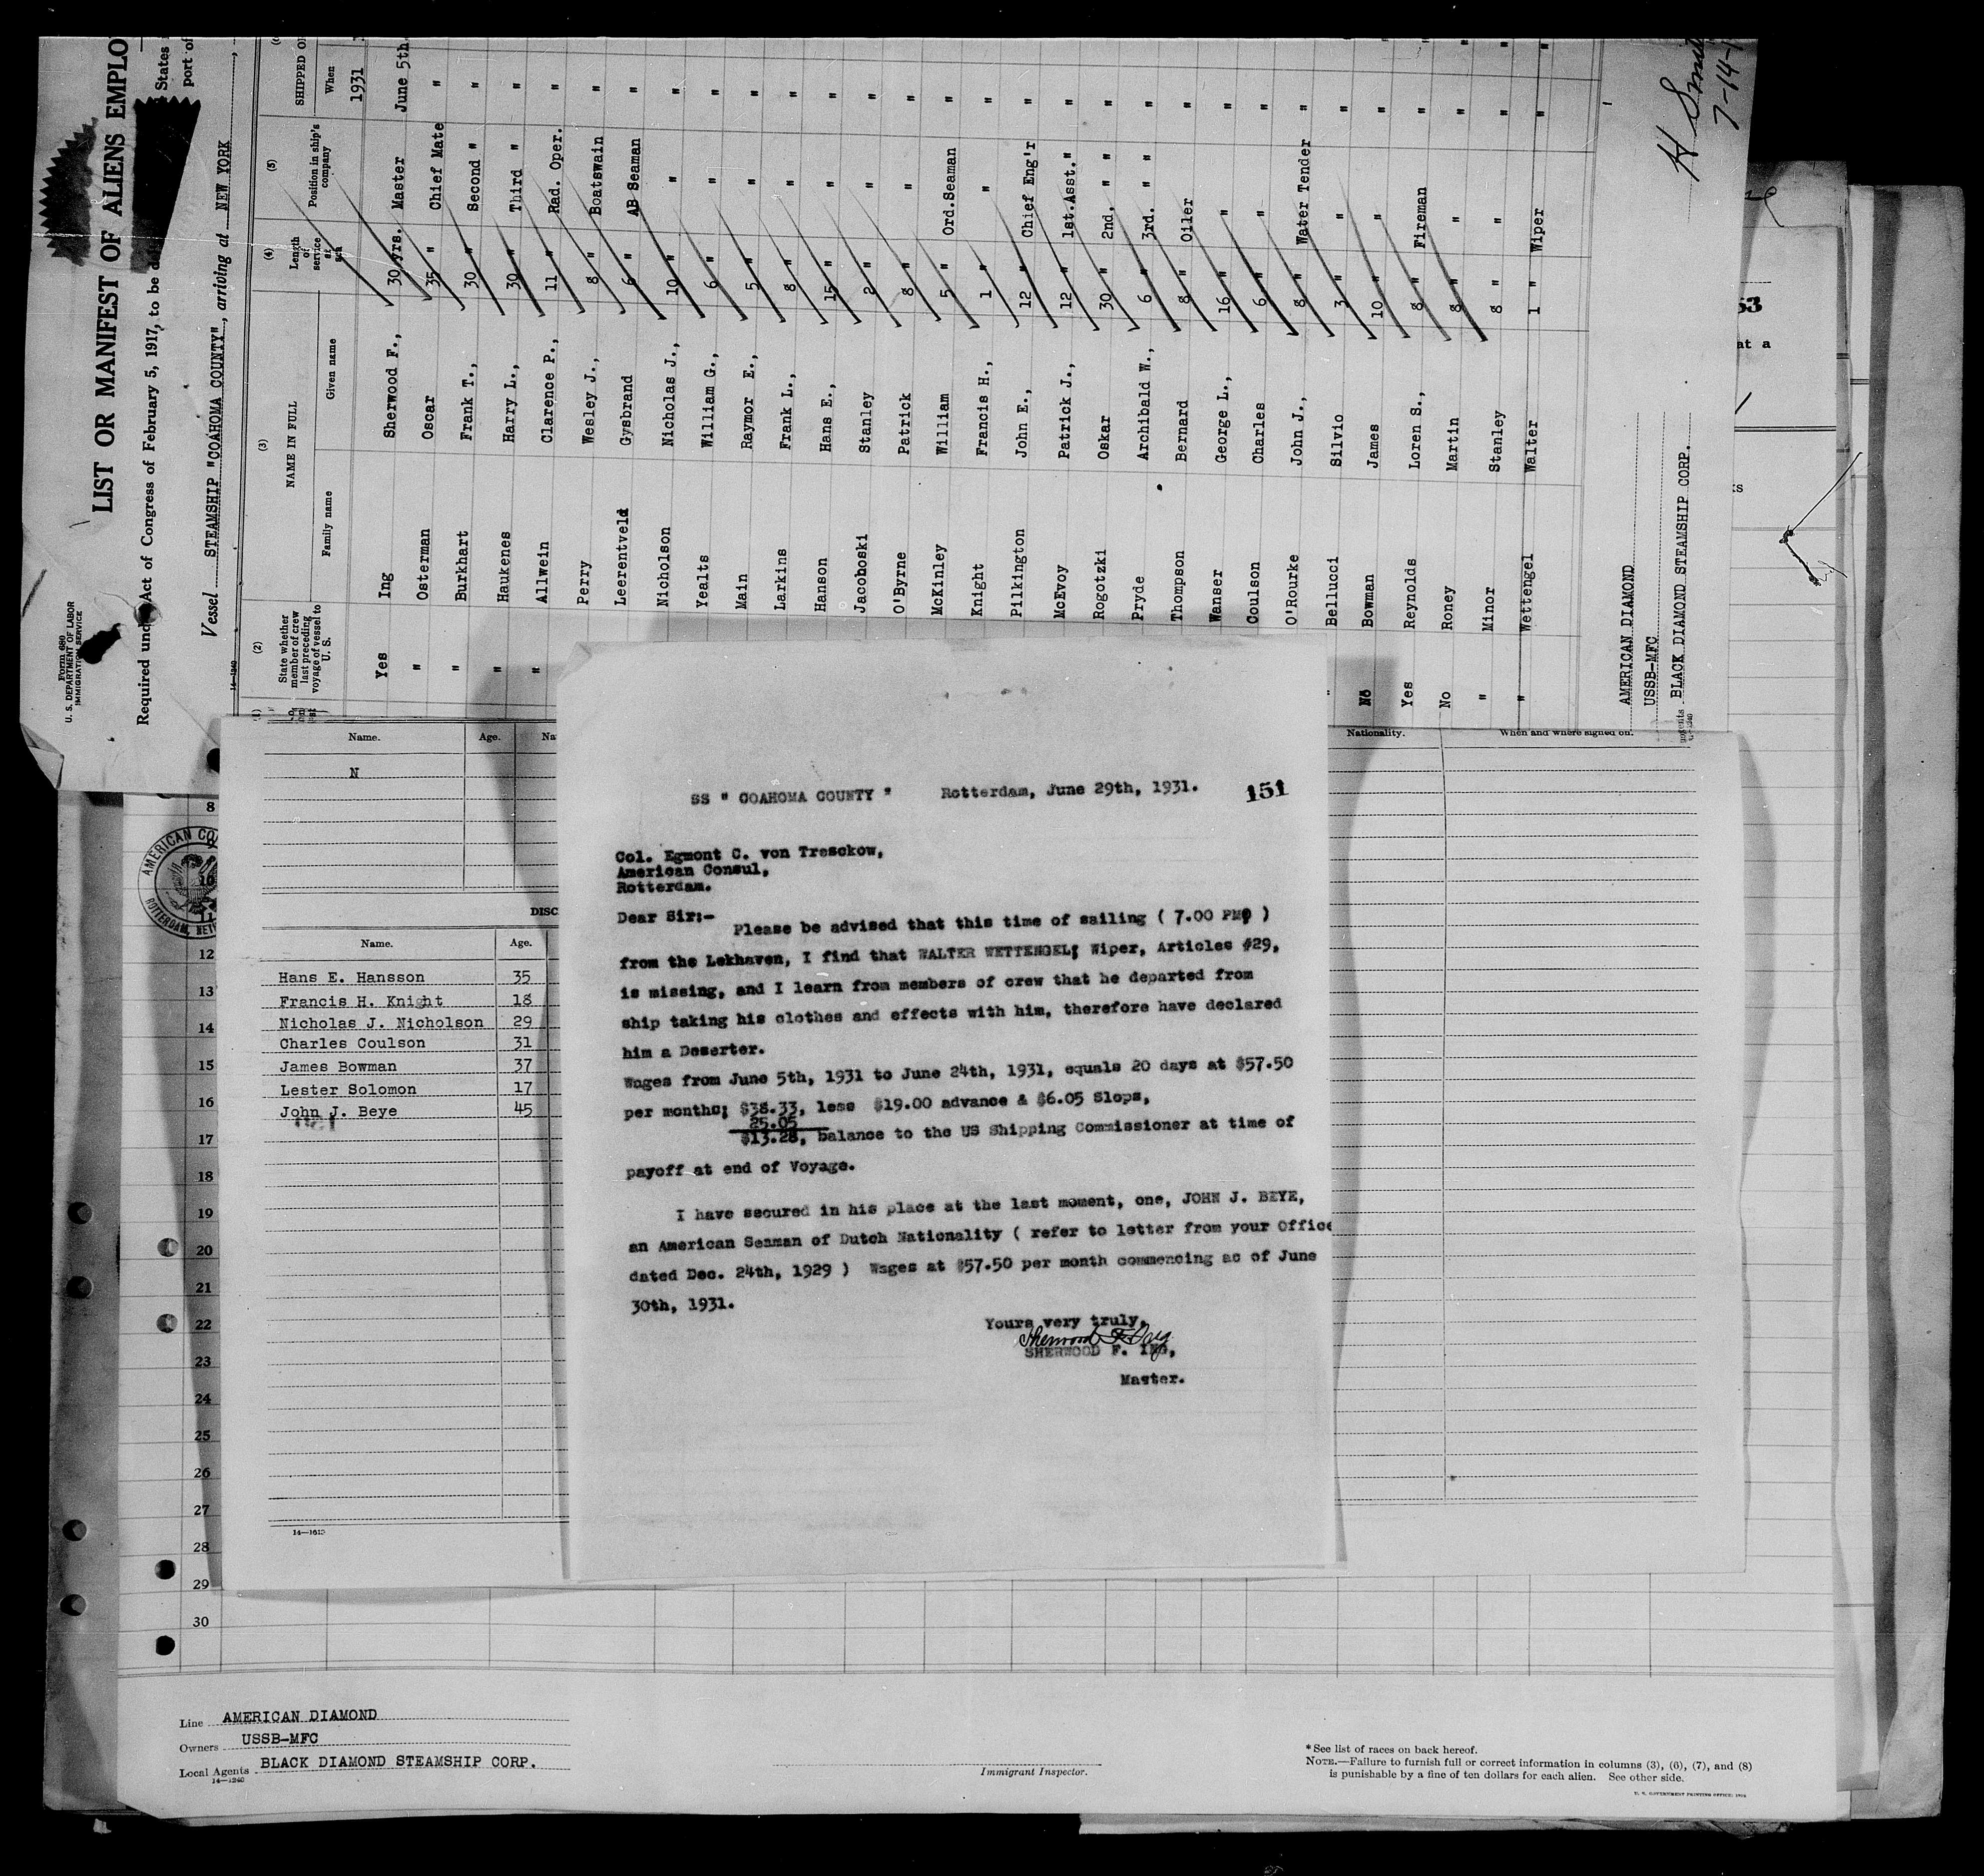 Form 680
U. S. DEPARTMENT OF LABOR
IMMIGRATION SERVICE
LIST OR MANIFEST OF ALIENS EMPLO
Required und Act of Congress of February 5, 1917, to be
States
port of
Vessel STEAMSHIP "COAHOMA COUNTY", arriving at NEW YORK
14—1240
(2) (3) (4) (5)
State whether member of crew last preceding voyage of vessel to U. S.
NAME IN FULL
Family name Given name
Length of service at sea
Position in ship's company
SHIPPED O
When
1931
Yes Ing Sherwood F., 30 yrs. Master June 5th.
" Osterman Oscar 35 " Chief Mate "
" Burkhart Frank T., 30 " Second " "
" Haukenes Harry L., 30 " Third " "
" Allwein Clarence P., 11 " Rad. Oper. "
Perry Wesley J., 8 " Boatswain "
Leerentveld Gysbrand 6 " AB Seaman "
Nicholson Nicholas J., 10 " " "
Yealts William G., 6 " " "
Main Raymor E., 5 " " "
Larkins Frank L., 8 " " "
Hanson Hans E., 15 " " "
Jacoboski Stanley 2 " " "
O'Byrne Patrick 8 " " "
McKinley William 5 " Ord.Seaman "
Knight Francis H., 1 " " "
Pilkington John E., 12 " Chief Eng'r "
McEvoy Patrick J., 12 " 1st.Asst." "
Rogotzki Oskar 30 " 2nd. " " "
Pryde Archibald W., 6 " 3rd. " " "
Thompson Bernard 8 " Oiler "
Wanser George L., 16 " " "
Coulson Charles 6 " " "
O'Rourke John J., 8 " Water Tender "
" Bellucci Silvio 3 " " "
No Bowman James 10 " " "
Yes Reynolds Loren S., 8 " Fireman "
No Roney Martin 8 " " "
" Minor Stanley 8 " " "
" Wettengel Walter 1 " Wiper "
AMERICAN DIAMOND
USSB-MFC
BLACK DIAMOND STEAMSHIP CORP.
7-14-
53
at a
Name. Age. Na Nationality. When and where signed on.
N
DISC
Name. Age.
Hans E. Hansson 35
Francis H. Knight 18
Nicholas J. Nicholson 29
Charles Coulson 31
James Bowman 37
Lester Solomon 17
John J. Beye 45
14—1613
SS " COAHOMA COUNTY " Rotterdam, June 29th, 1931. 151
Col. Egmont C. von Tresckow,
American Consul,
Rotterdam.
Dear Sir:-
Please be advised that this time of sailing ( 7.00 PM )
from the Lekhaven, I find that WALTER WETTENGEL; Wiper, Articles #29,
is missing, and I learn from members of crew that he departed from
ship taking his clothes and effects with him, therefore have declared
him a Deserter.
Wages from June 5th, 1931 to June 24th, 1931, equals 20 days at $57.50
per months; $38.33, less $19.00 advance & $6.05 Slops,
25.05
$13.28, balance to the US Shipping Commissioner at time of
payoff at end of Voyage.
I have secured in his place at the last moment, one, JOHN J. BEYE,
an American Seaman of Dutch Nationality ( refer to letter from your Office
dated Dec. 24th, 1929 ) Wages at $57.50 per month commencing as of June
30th, 1931.
Yours very truly,
Sherwood F. Ing
SHERWOOD F. ING,
Master.
AMERICAN CO
ROTTERDAM, NETH
8
10
11
12
13
14
15
16
17
18
19
20
21
22
23
24
25
26
27
28
29
30
Line AMERICAN DIAMOND
Owners USSB-MFC
Local Agents BLACK DIAMOND STEAMSHIP CORP.
14—1240
Immigrant Inspector.
*See list of races on back hereof.
NOTE.—Failure to furnish full or correct information in columns (3), (6), (7), and (8)
is punishable by a fine of ten dollars for each alien. See other side.